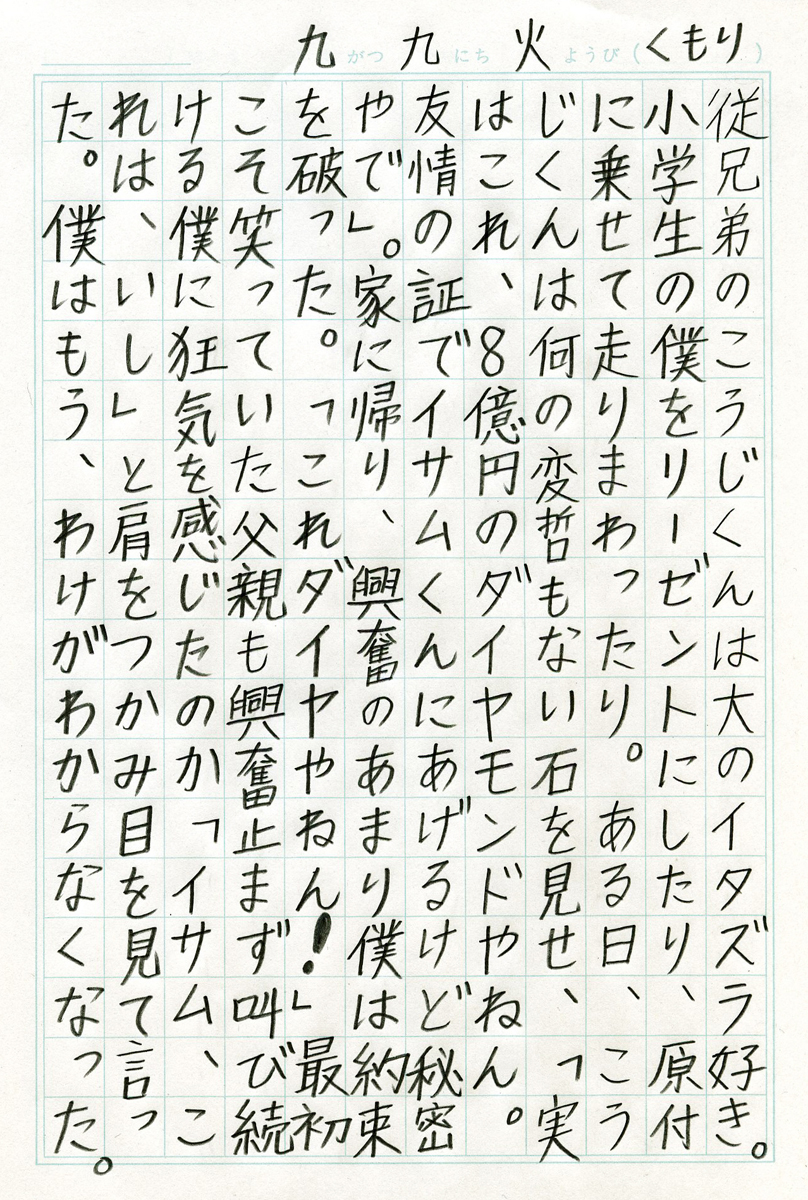 九がつ九にち火ようび(くもり)
従兄弟のこうじくんは大のイタズラ好き。
小学生の僕をリーゼントにしたり、原付
に乗せて走りまわったり。ある日、こう
じくんは何の変哲もない石を見せ、「実
はこれ、8億円のダイヤモンドやねん。
友情の証でイサムくんにあげるけど秘密
やで」。家に帰り、興奮のあまり僕は約束
を破った。「これダイヤやねん!」最初
こそ笑っていた父親も興奮止まず叫び続
ける僕に狂気を感じたのか「イサム、こ
れは、いし」と肩をつかみ目を見て言っ
た。僕はもう、わけがわからなくなった。